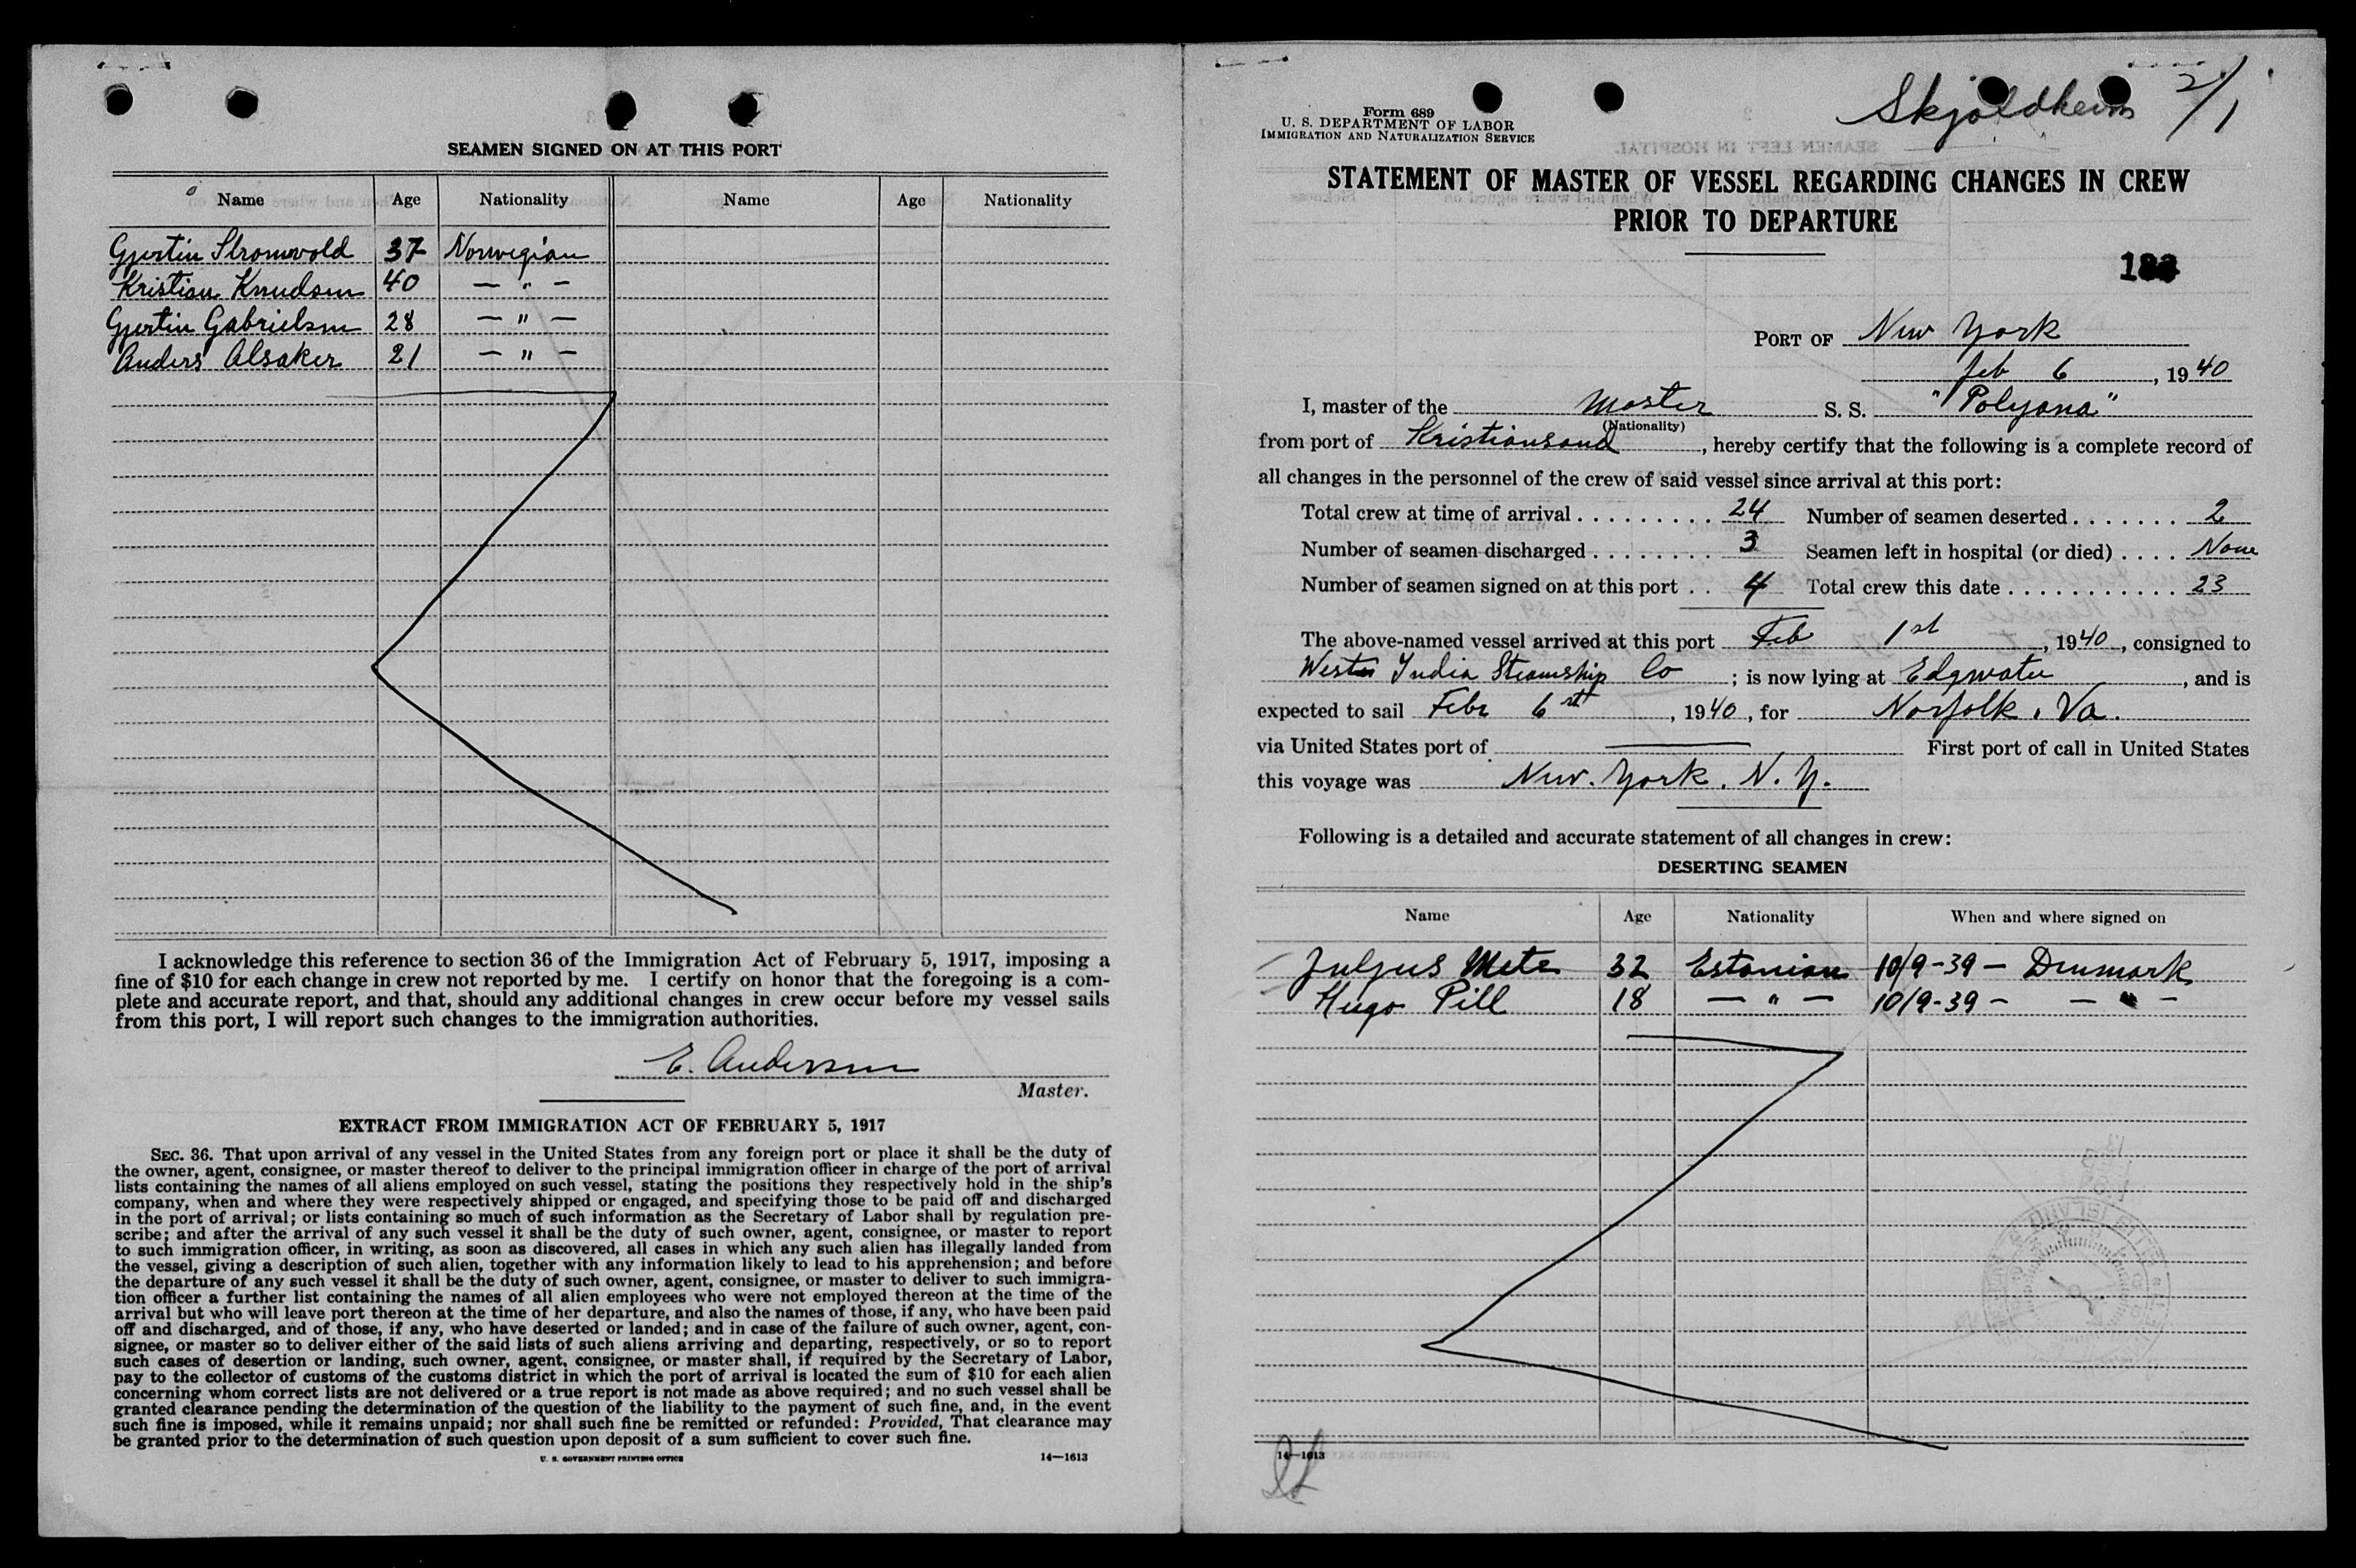 SEAMEN SIGNED ON AT THIS PORT
Name Age Nationality Name Age Nationality
Gjertin Stromvold 37 Norwegian
Kristian Knudsen 40 — " —
Gjertin Gabrielsen 28 — " —
Anders Alsaker 21 — " —
I acknowledge this reference to section 36 of the Immigration Act of February 5, 1917, imposing a
fine of $10 for each change in crew not reported by me. I certify on honor that the foregoing is a com-
plete and accurate report, and that, should any additional changes in crew occur before my vessel sails
from this port, I will report such changes to the immigration authorities.
E. Andersen
Master.
EXTRACT FROM IMMIGRATION ACT OF FEBRUARY 5, 1917
SEC. 36. That upon arrival of any vessel in the United States from any foreign port or place it shall be the duty of
the owner, agent, consignee, or master thereof to deliver to the principal immigration officer in charge of the port of arrival
lists containing the names of all aliens employed on such vessel, stating the positions they respectively hold in the ship's
company, when and where they were respectively shipped or engaged, and specifying those to be paid off and discharged
in the port of arrival; or lists containing so much of such information as the Secretary of Labor shall by regulation pre-
scribe; and after the arrival of any such vessel it shall be the duty of such owner, agent, consignee, or master to report
to such immigration officer, in writing, as soon as discovered, all cases in which any such alien has illegally landed from
the vessel, giving a description of such alien, together with any information likely to lead to his apprehension; and before
the departure of any such vessel it shall be the duty of such owner, agent, consignee, or master to deliver to such immigra-
tion officer a further list containing the names of all alien employees who were not employed thereon at the time of the
arrival but who will leave port thereon at the time of her departure, and also the names of those, if any, who have been paid
off and discharged, and of those, if any, who have deserted or landed; and in case of the failure of such owner, agent, con-
signee, or master so to deliver either of the said lists of such aliens arriving and departing, respectively, or so to report
such cases of desertion or landing, such owner, agent, consignee, or master shall, if required by the Secretary of Labor,
pay to the collector of customs of the customs district in which the port of arrival is located the sum of $10 for each alien
concerning whom correct lists are not delivered or a true report is not made as above required; and no such vessel shall be
granted clearance pending the determination of the question of the liability to the payment of such fine, and, in the event
such fine is imposed, while it remains unpaid; nor shall such fine be remitted or refunded: Provided, That clearance may
be granted prior to the determination of such question upon deposit of a sum sufficient to cover such fine.
U. S. GOVERNMENT PRINTING OFFICE 14—1613
Skjoldheim 2/1
Form 689
U. S. DEPARTMENT OF LABOR
IMMIGRATION AND NATURALIZATION SERVICE
STATEMENT OF MASTER OF VESSEL REGARDING CHANGES IN CREW
PRIOR TO DEPARTURE
PORT OF New York
Feb 6, 1940
I, master of the Master S. S. "Polyana"
(Nationality)
from port of Kristiansand, hereby certify that the following is a complete record of
all changes in the personnel of the crew of said vessel since arrival at this port:
Total crew at time of arrival . . . . . . . . . 24 Number of seamen deserted . . . . . . . 2
Number of seamen discharged . . . . . . . . 3 Seamen left in hospital (or died) . . . . None
Number of seamen signed on at this port . . 4 Total crew this date . . . . . . . . . . . 23
The above-named vessel arrived at this port Feb 1st, 1940, consigned to
West India Steamship Co; is now lying at Edgwater, and is
expected to sail Febr 6st, 1940, for Norfolk, Va.
via United States port of —— First port of call in United States
this voyage was New. York. N. Y.
Following is a detailed and accurate statement of all changes in crew:
DESERTING SEAMEN
Name Age Nationality When and where signed on
Juljus Mets 32 Estonian 10/9-39 — Denmark
Hugo Pill 18 — " — 10/9-39 — — " —
14—1613